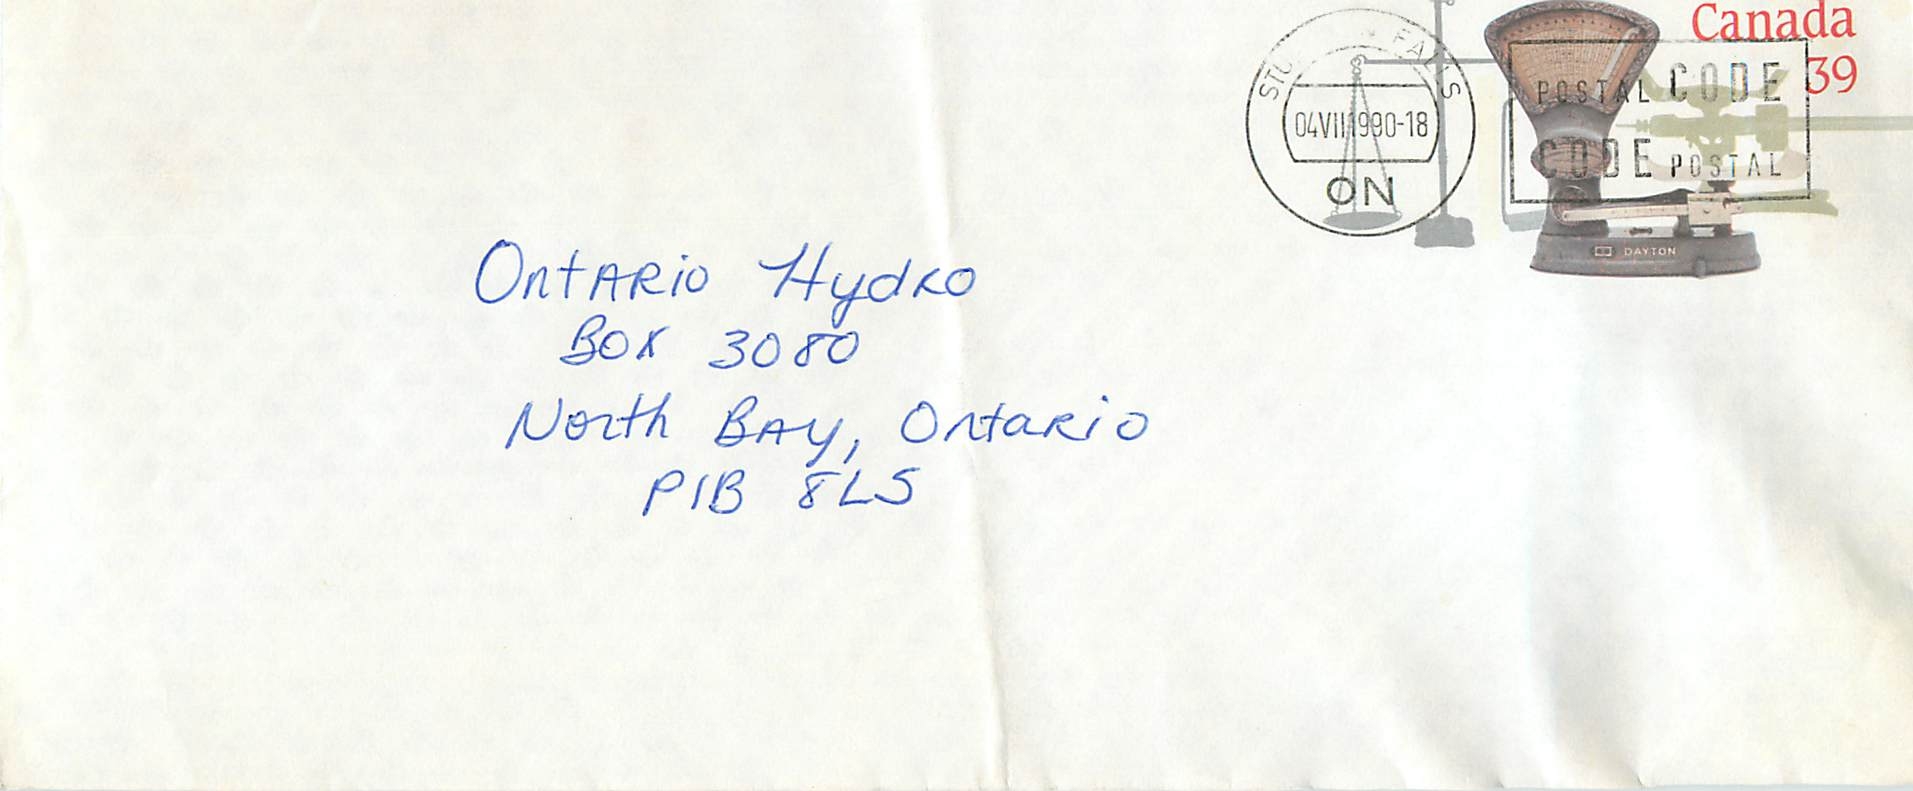 Canada
39
FALLS
04VII1990-18
ON
POSTAL CODE
CODE POSTAL
DAYTON
Ontario Hydro
Box 3080
North Bay, Ontario
P1B 8L5